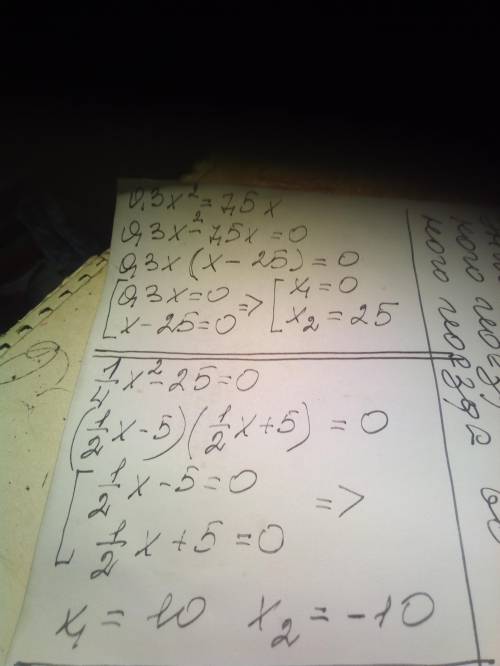 0,3x² = 7,5x
0,3x² - 7,5x = 0
0,3x (x - 25) = 0
[ 0,3x = 0 => [ x₁ = 0
x - 25 = 0 x₂ = 25
1/4 x² - 25 = 0
(1/2 x - 5) (1/2 x + 5) = 0
[ 1/2 x - 5 = 0 =>
1/2 x + 5 = 0
x₁ = 10 x₂ = -10